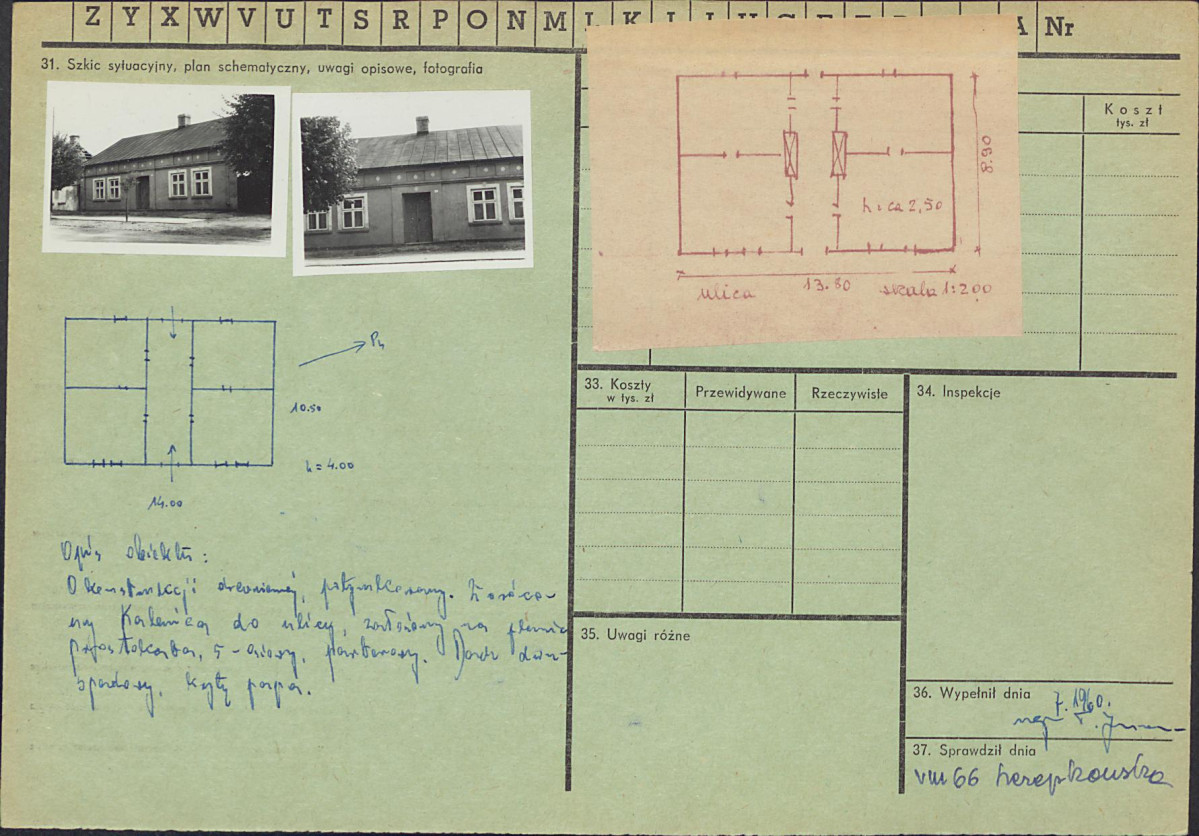 Z Y X W V U T S R P O N M Ł K Nr
31. Szkic sytuacyjny, plan schematyczny, uwagi opisowe, fotografia
Koszt
tys. zł
8.90
h = ca 2,50
13.80
ulica
skala 1:200
Pn
10.50
h = 4.00
14.00
Opis obiektu:
O konstrukcji drewnianej, potynkowany. Zwróco-
ny kalenicą do ulicy, założony na planie
prostokąta, 5-osiowy, parterowy. Dach dwu-
spadowy, kryty papą.
33. Koszty
w tys. zł
Przewidywane
Rzeczywiste
34. Inspekcje
35. Uwagi różne
36. Wypełnił dnia
37. Sprawdził dnia
VIII 66